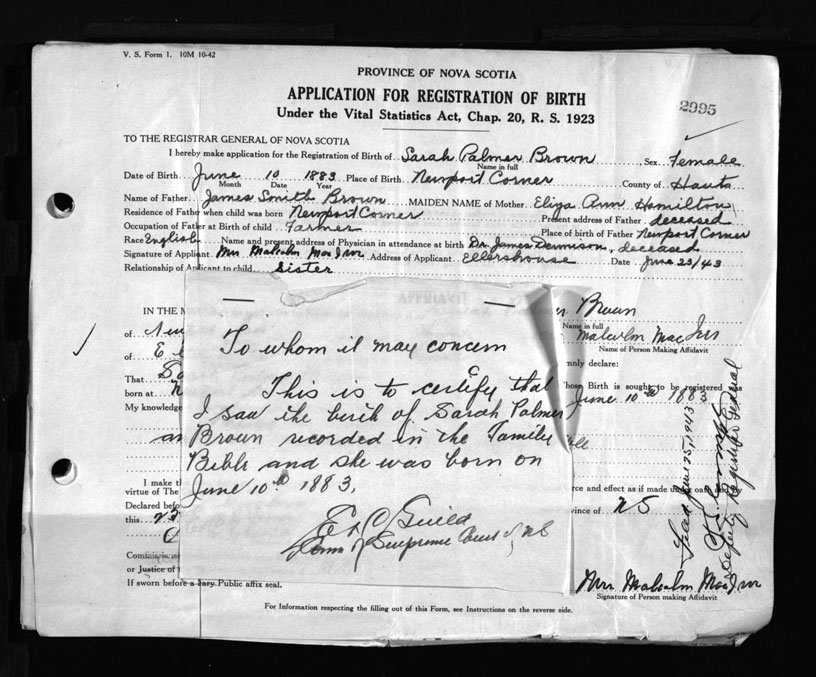 V. S. Form 1. 10M 10-42
PROVINCE OF NOVA SCOTIA
APPLICATION FOR REGISTRATION OF BIRTH
Under the Vital Statistics Act, Chap. 20, R. S. 1923
2995
TO THE REGISTRAR GENERAL OF NOVA SCOTIA
I hereby make application for the Registration of Birth of Sarah Palmer Brown, Sex Female
Name in full
Date of Birth June 10 1883 Place of Birth Newport Corner County of Hants
Month Date Year
Name of Father James Smith Brown MAIDEN NAME of Mother Eliza Ann Hamilton
Residence of Father when child was born Newport Corner Present address of Father deceased
Occupation of Father at Birth of child Farmer Place of birth of Father Newport Corner
Race English Name and present address of Physician in attendance at birth Dr. James Dennison, deceased
Signature of Applicant Mrs Malcolm MacIvor Address of Applicant Ellershouse Date June 23/43
Relationship of Applicant to child Sister
AFFIDAVIT
IN THE M Brown
Name in full
of Malcolm Mac
Name of Person Making Affidavit
of E mnly declare:
That hose Birth is sought to be registered as
born at June 10th 1883
My knowledge
To whom it may concern
This is to certify that
I saw the birth of Sarah Palmer
Brown recorded in the Family
Bible and she was born on
June 10th 1883.
E C Guild
Comm of Supreme Court of NS
I make th rce and effect as if made under oath
virtue of The
Declared befo vince of NS
this
or Justice of
If sworn before a tary Public affix seal.
Mrs Malcolm MacIvor
Signature of Person making Affidavit
For Information respecting the filling out of this Form, see Instructions on the reverse side.
June 25, 1943
Deputy Registrar General